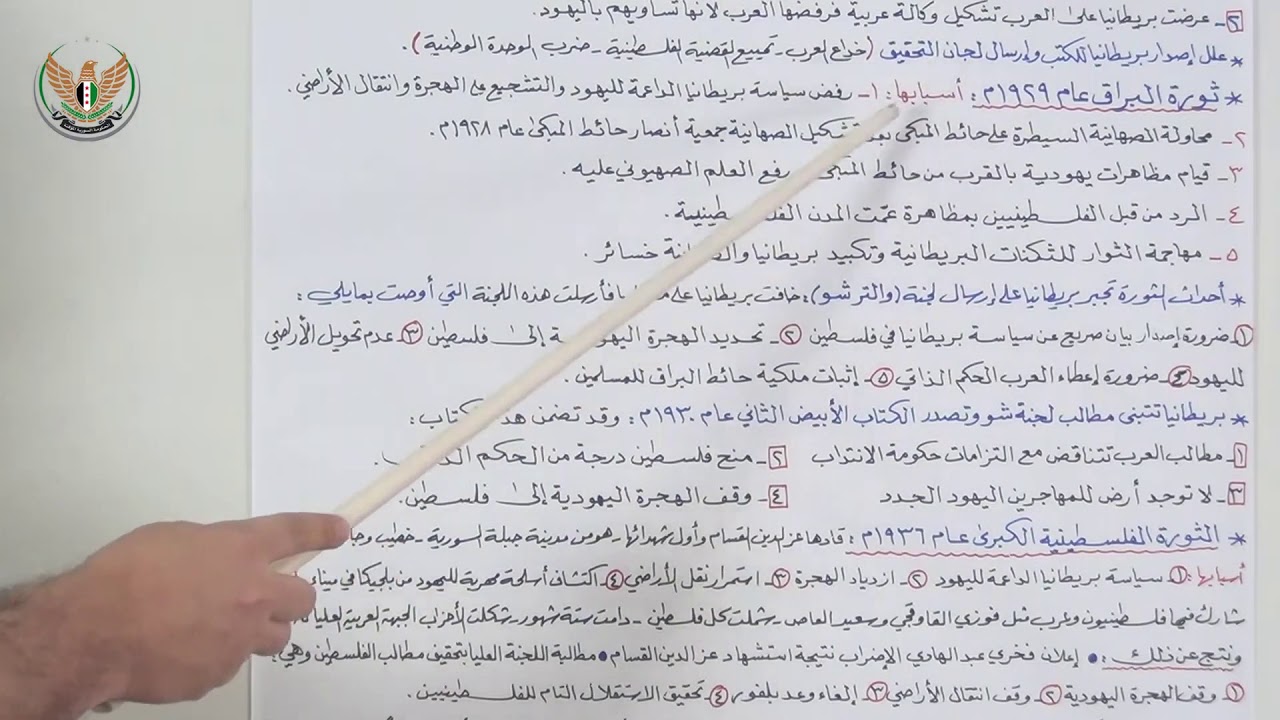 ٢ـ عرضت بريطانيا على العرب تشكيل وكالة عربية فرفضها العرب لأنها تساويهم باليهود.
* علل إصدار بريطانيا للكتب وإرسال لجان التحقيق (خداع العرب ـ تمييع القضية الفلسطينية ـ ضرب الوحدة الوطنية).
* ثورة البراق عام ١٩٢٩م: أسبابها: ١ـ رفض سياسة بريطانيا الداعمة لليهود والتشجيع على الهجرة وانتقال الأراضي.
٢ـ محاولة الصهاينة السيطرة على حائط المبكى بعد تشكيل الصهاينة جمعية أنصار حائط المبكى عام ١٩٢٨م.
٣ـ قيام مظاهرات يهودية بالقرب من حائط المبكى رفع العلم الصهيوني عليه.
٤ـ الرد من قبل الفلسطينيين بمظاهرة عمّت المدن الفلسطينية.
٥ـ مهاجمة الثوار للثكنات البريطانية وتكبيد بريطانيا خسائر.
* أحداث الثورة تجبر بريطانيا على إرسال لجنة (والتر شو): خافت بريطانيا على فأرسلت هذه اللجنة التي أوصت بمايلي:
١ـ ضرورة إصدار بيان صريح عن سياسة بريطانيا في فلسطين ٢ـ تحديد الهجرة اليهودية إلى فلسطين ٣ـ عدم تحويل الأراضي
لليهود ٤ـ ضرورة إعطاء العرب الحكم الذاتي ٥ـ إثبات ملكية حائط البراق للمسلمين.
* بريطانيا تتبنى مطالب لجنة شو وتصدر الكتاب الأبيض الثاني عام ١٩٣٠م: وقد تضمن هذا الكتاب:
١ـ مطالب العرب تتناقض مع التزامات حكومة الانتداب ٢ـ منح فلسطين درجة من الحكم
٣ـ لا توجد أرض للمهاجرين اليهود الجدد ٤ـ وقف الهجرة اليهودية إلى فلسطين.
* الثورة الفلسطينية الكبرى عام ١٩٣٦م: قادها عز الدين القسام وأول شهدائها ـ هو من مدينة جبلة السورية ـ خطيب
أسبابها: ١ـ سياسة بريطانيا الداعمة لليهود ٢ـ ازدياد الهجرة ٣ـ استمرار نقل الأراضي ٤ـ اكتشاف أسلحة مهربة لليهود من بلجيكا في ميناء
شارك فيها فلسطينيون وعرب مثل فوزي القاوقجي وسعيد العاص ـ شملت كل فلسطين ـ دامت ستة شهور ـ شكلت الأحزاب الجبهة العربية العليا
ونتج عن ذلك: • إعلان فخري عبد الهادي الإضراب نتيجة استشهاد عز الدين القسام • مطالبة اللجنة العليا بتحقيق مطالب الفلسطين وهي:
١ـ وقف الهجرة اليهودية ٢ـ وقف انتقال الأراضي ٣ـ إلغاء وعد بلفور ٤ـ تحقيق الاستقلال التام للفلسطينيين.